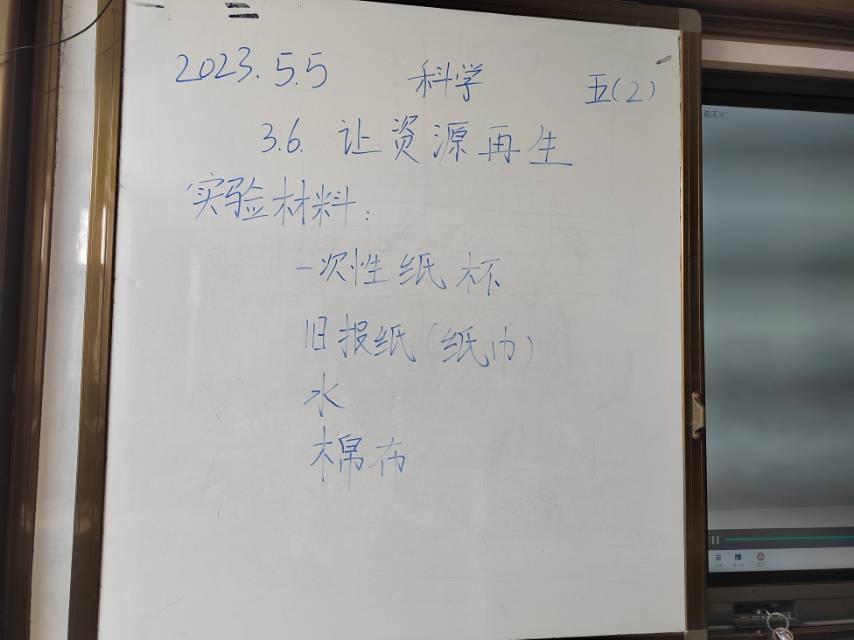 2023.5.5 科学 五(2)
3.6. 让资源再生
实验材料:
一次性纸杯
旧报纸(纸巾)
水
棉布